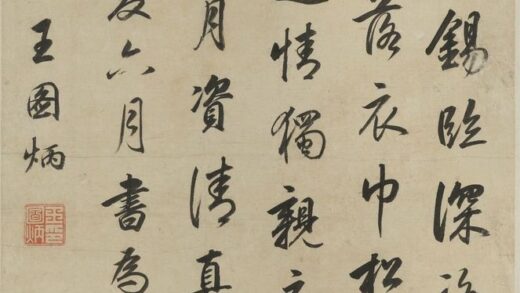 錫臨深
落衣巾松
情獨親
月資清真
六月書為
王國炳